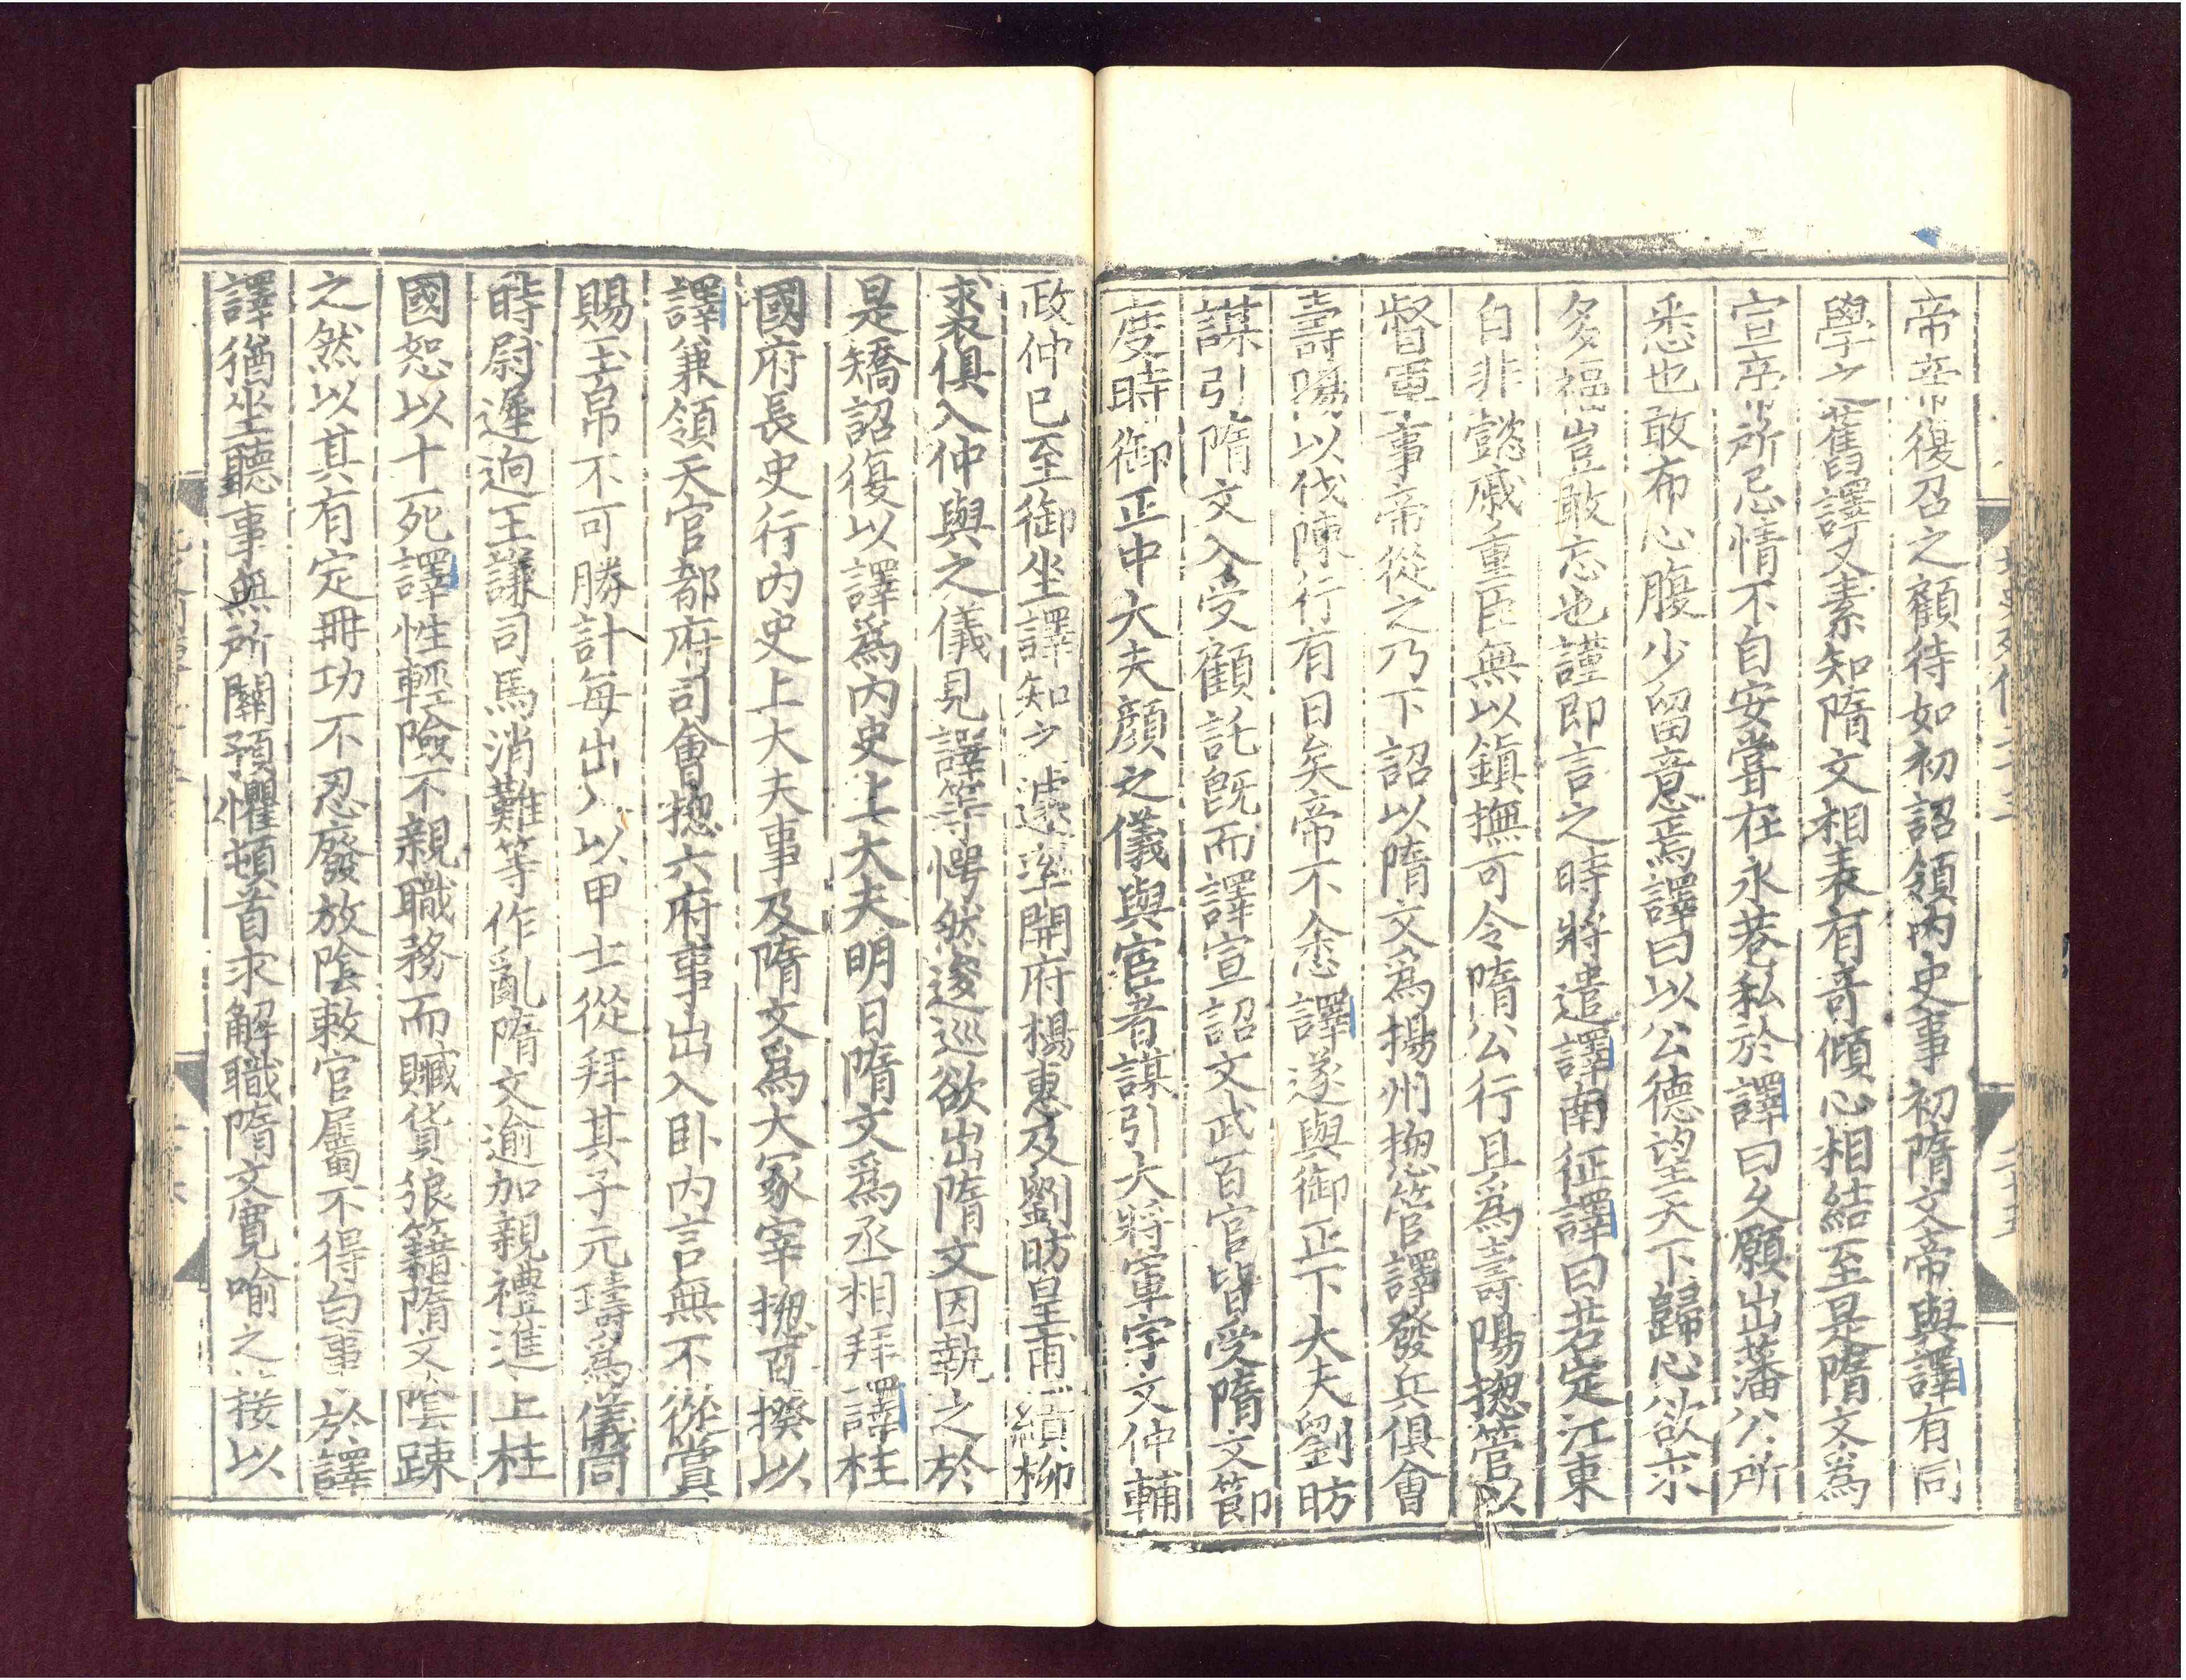 帝帝復召之顧待如初詔領內史事初隋文帝與譯有同
學之舊譯又素知隋文相表有奇傾心相結至是隋文爲
宣帝所忌情不自安嘗在永巷私於譯曰久願出藩公所
悉也敢布心腹少留意焉譯曰以公德望天下歸心欲求
多福豈敢忘也謹即言之時將遣譯南征譯曰若定江東
自非懿戚重臣無以鎮撫可令隋公行且爲壽陽揔管以
督軍事帝從之乃下詔以隋文爲揚州揔管譯發兵俱會
壽陽以伐陳行有日矣帝不悆譯遂與御正下大夫劉昉
謀引隋文入受顧託旣而譯宣詔文武百官皆受隋文節
度時御正中大夫顏之儀與宦者謀引大將軍宇文仲輔
政仲已至御坐譯知之遽率開府楊惠及劉昉皇甫績柳
裘俱入仲與之儀見譯等愕然逡巡欲出隋文因執之於
是矯詔復以譯爲內史上大夫明日隋文爲丞相拜譯柱
國府長史行內史上大夫事及隋文爲大冢宰揔百揆以
譯兼領天官都府司會揔六府事出入臥內言無不從賞
賜玉帛不可勝計每出入以甲士從拜其子元璹爲儀同
時尉遲迥王謙司馬消難等作亂隋文逾加親禮進上柱
國恕以十死譯性輕險不親職務而贓貨狼籍隋文陰踈
之然以其有定冊功不忍廢放陰敕官屬不得白事於譯
譯猶坐聽事無所關預懼頓首求解職隋文寬喻之接以